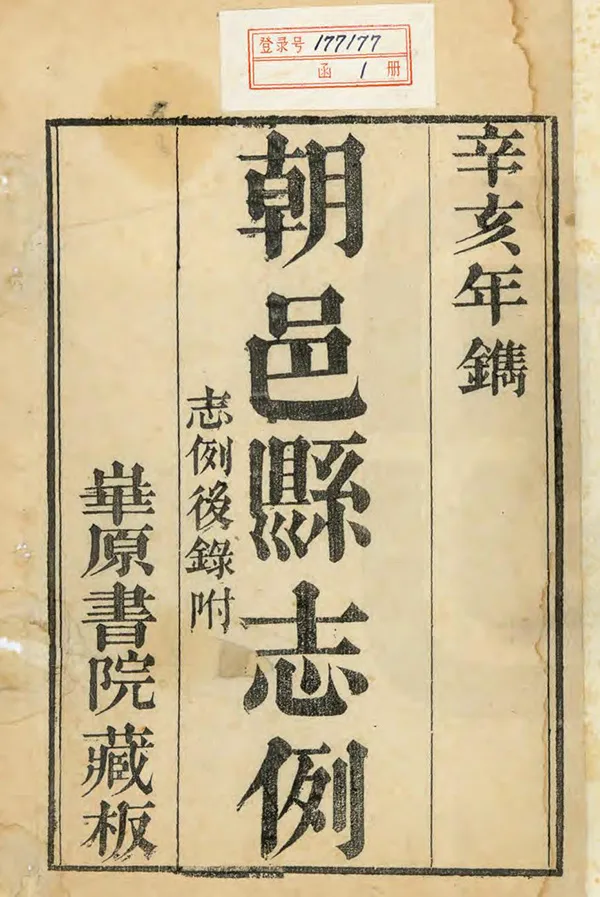 登录号 177177
函 1 册
辛亥年鐫
朝邑縣志例
志例後錄附
華原書院藏板